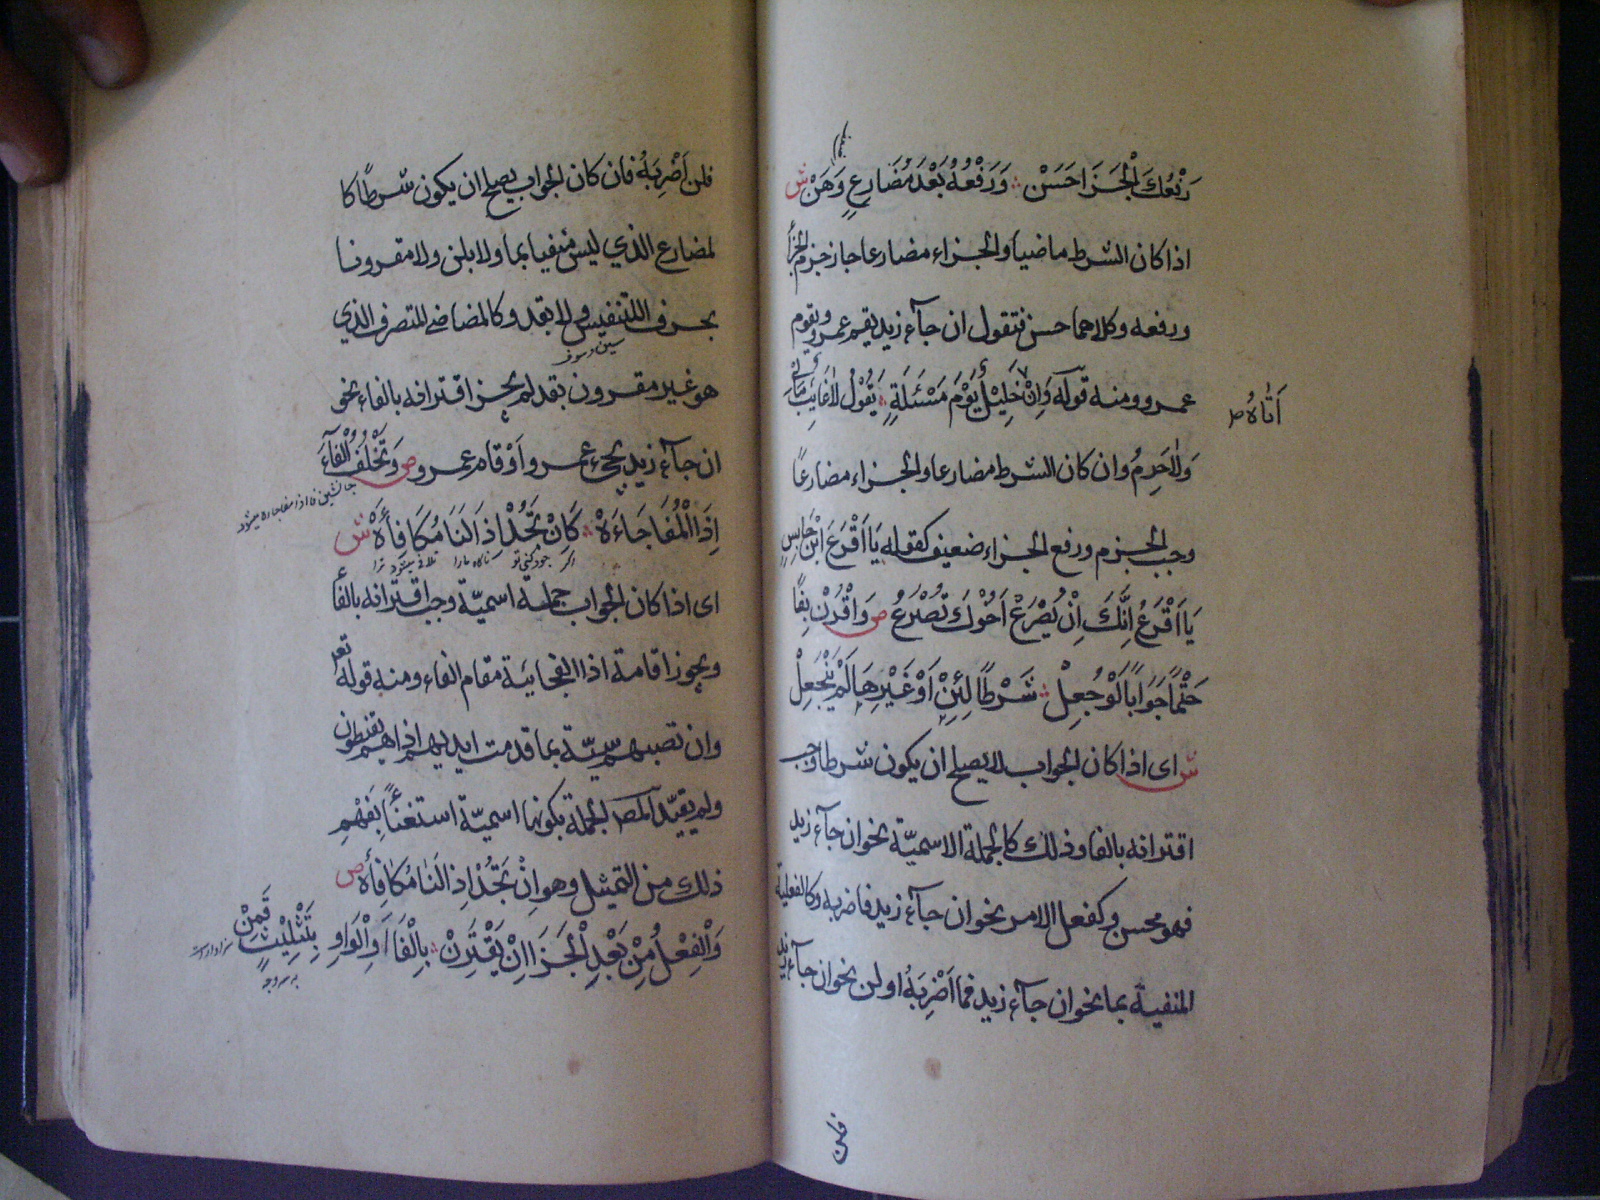 رَفْعُكَ الْجَزَا حَسَنْ ؞ وَرَفْعُهُ بَعْدَ مُضَارِعٍ وَهَنْ ش
اذا كان الشرط ماضيا والجزاء مضارعا جاز جزم الجزأ
ورفعه وكلاهما حسن فتقول ان جآء زيد يقم عمرو ويقوم
عمرو ومنه قوله وَاِنْ خَلِيْلٌ يَوْمَ مَسْئَلَةٍ ؞ يَقُوْلُ لَاغَايِبٌ مَالِي
اَتَاهُ ص
وَلَاحَرِمُ وان كان الشرط مضارعا والجزاء مضارعًا
وجب الجزم ورفع الجزاء ضعيف كقوله يَا اَقْرَعَ ابْنَ حَابِسٍ
يَا اَقْرَعُ اِنَّكَ اِنْ يُصْرَعْ اَخُوْكَ تُصْرَعُ ص وَاقْرُنْ بِفَا
حَتْمًا جَوَابًا لَوْ جُعِلْ ؞ شَرْطًا لِئِنْ اَوْ غَيْرِهَا لَمْ يَنْجَعِلْ
ش اى اذا كان الجواب لا يصلح ان يكون شرطا وجب
اقترانه بالفا وذلك كالجملة الاسميّة نحو ان جآء زيد
فهو محسن وكفعل الامر نحو ان جآء زيد فاضربه وكالفعلية
المنفية بما نحو ان جآء زيد فما اَضْرِبُهُ او لن نحو ان جآء زيد
فلن
فلن اَضْرِبَهُ فان كان الجواب يصلح ان يكون شرطًا كا
لمضارع الذي ليس منفيا بما ولا بلن ولا مقرونا
بحرف التنفيس ولا بقد وكالماضي المتصرف الذي
سين وسوف
هو غير مقرون بقد لم يجز اقترانه بالفاء نحو
ان جآء زيد يجىء عمرو اَوْ قام عمرو ص وَتَخْلُفُ الْفَآءَ
جانشين فا اذا مفاجاه ميشود
اِذَا الْمُفَاجَاءَهْ ؞ كَاِنْ تَجُدْ اِذَا لَنَا مُكَافَأَهْ ش
اگر جود كنى تو ناگاه مارا تلافى ميشود ترا
اى اذا كان الجواب جملة اسميّة وجب اقترانه بالفأ
ويجوز اقامة اذا الفجائيّة مقام الفاء ومنه قوله تعر
وان تصبهم سيّئة بما قدمت ايديهم اذا هم يقنطون
ولم يقيّد المص الجملة بكونها اسميّة استغنأً بِفَهْمِ
ذلك من التمثيل وهو اِنْ تَجُدْ اِذا لَنَا مُكَافَأَه ص
وَالْفِعْلُ مِنْ بَعْدِ الْجَزَا اِنْ يَقْتَرِنْ ؞ بِالْفَا اَوِ الْوَاوِ بِتَثْلِيْثٍ قَمِنْ
سزاوار است
به سه وجه